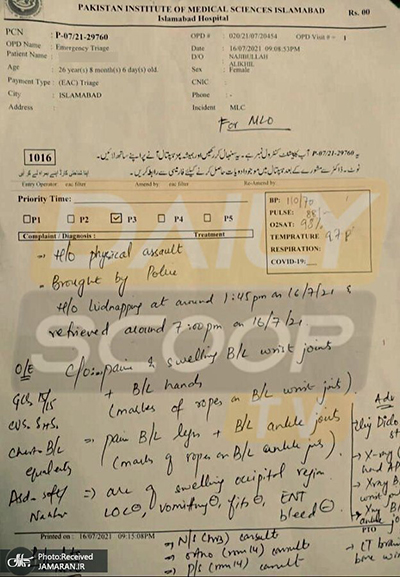 PAKISTAN INSTITUTE OF MEDICAL SCIENCES ISLAMABAD
Islamabad Hospital
Rs. 00
PCN : P-07/21-29760 OPD # : 020/21/07/20454 OPD Visit # = 1
OPD Name : Emergency Triage Date : 16/07/2021 09:08:53PM
Patient Name : D/O NAJIBULLAH ALIKHIL
Age : 26 year(s) 8 month(s) 6 day(s) old. Sex : Female
Payment Type : (EAC) Triage CNIC :
City : ISLAMABAD Phone : -
Address : Incident MLC
For MLO
1016
Entry Operator: eac filter Amend by: eac filter Re-Amend by:
Priority Time:
P1 P2 P3 P4 P5
Complaint / Diagnosis : Treatment
BP: 110/70
PULSE: 88/-
O2SAT: 98%
TEMPRATURE 97.8
RESPIRATION:
COVID-19:
H/o physical assault
- Brought by Police
H/o kidnapping at around 1:45pm on 16/7/21 &
retrieved around 7:00pm on 16/7/21.
O/E C/o:- pain & swelling B/L wrist joints
GCS 15/15 + B/L hands
(marks of ropes on B/L wrist joint)
CVS: S1+S2
Chest B/L = pain B/L legs + B/L ankle joints
(marks of ropes on B/L ankle jts).
Abd- soft => area of swelling occipital region
LOC⊖, vomiting⊖, fits⊖, ENT bleed ⊖
Adv
Inj Diclo
X-ray
X-ray B/L wrist joint
Xray B/L ankle joint
CT brain
Printed on : 16/07/2021 09:15:08PM
PTO
→ N/S consult
→ ortho (rm 14) consult
→ P/S (rm 14) consult
DAILY
SCOOP
TV
Photo:Received
JAMARAN.IR